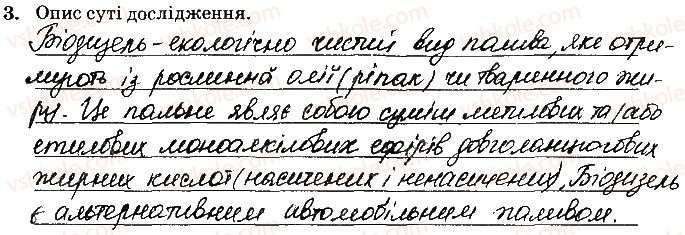 3. Опис суті дослідження.
Біодизель - екологічно чистий вид палива, яке отри-
мують із рослинної олії (ріпак) чи тваринного жи-
ру. Це пальне являє собою суміш метилових та/або
етилових моноалкілових ефірів довголанцюгових
жирних кислот (насичених і ненасичених). Біодизель
є альтернативним автомобільним паливом.